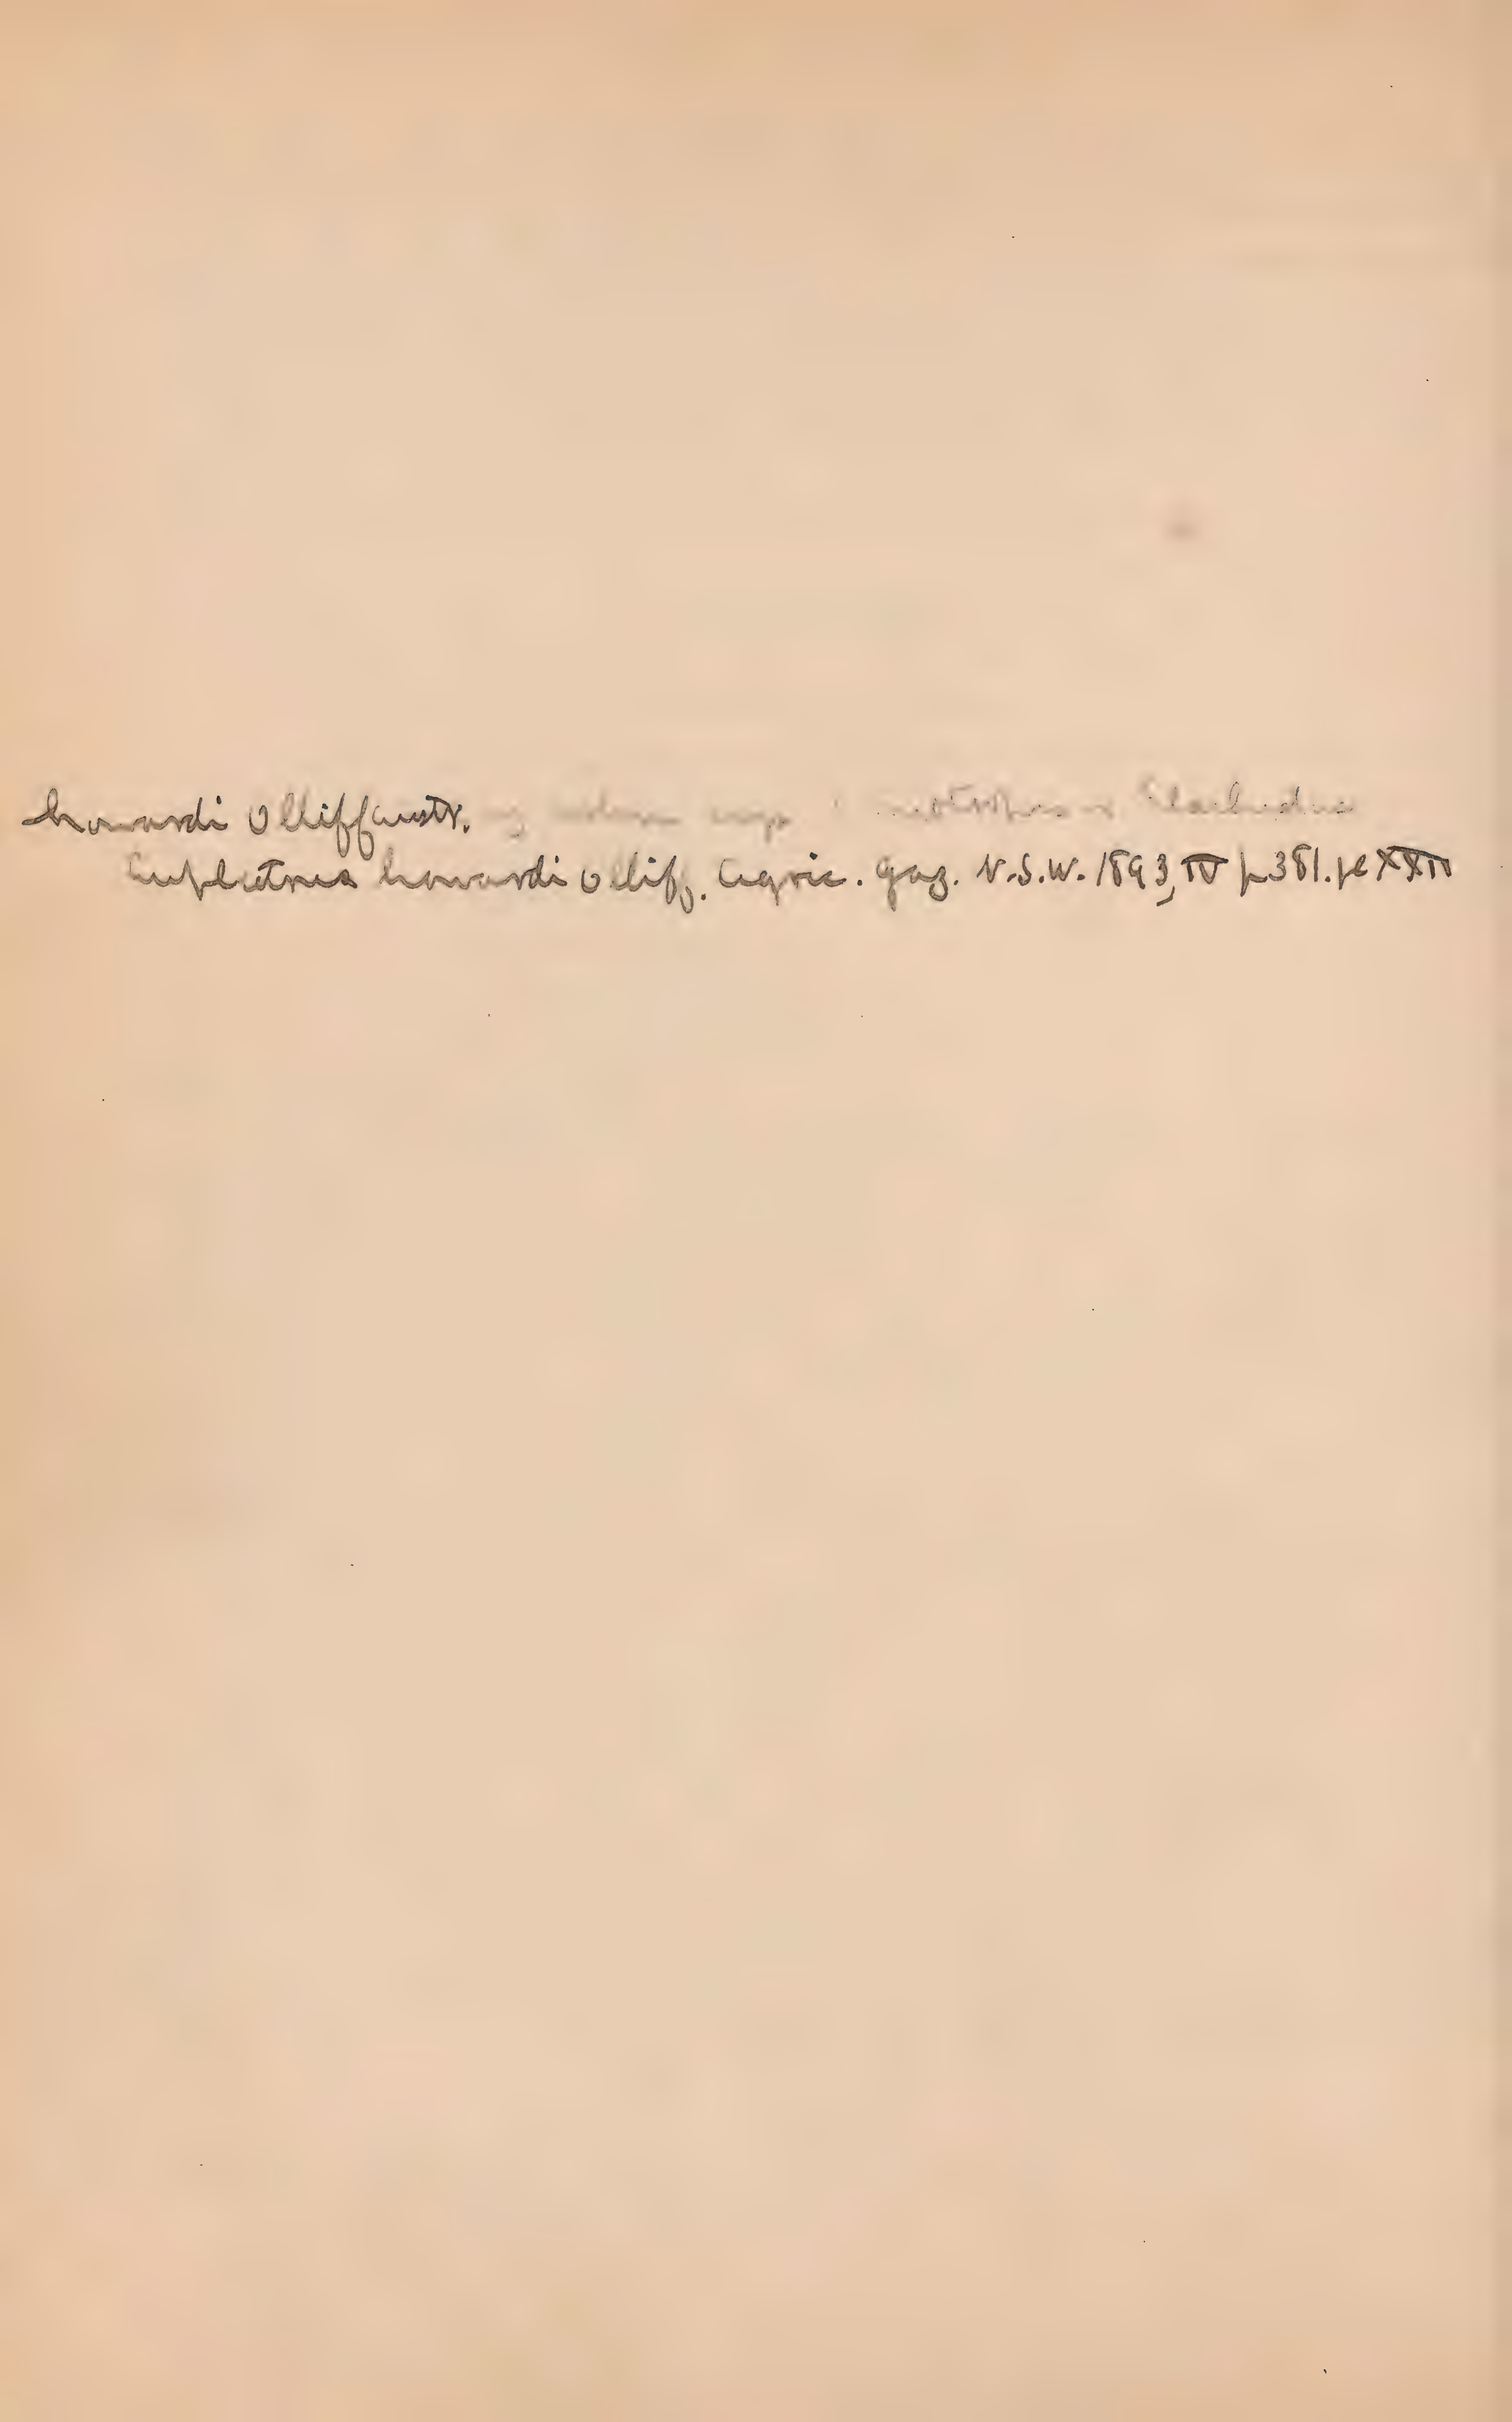 howardi Olliff austr.
Euplectrus howardi Olliff. Agric. Gaz. N.S.W. 1893, IV p381. pl XXII